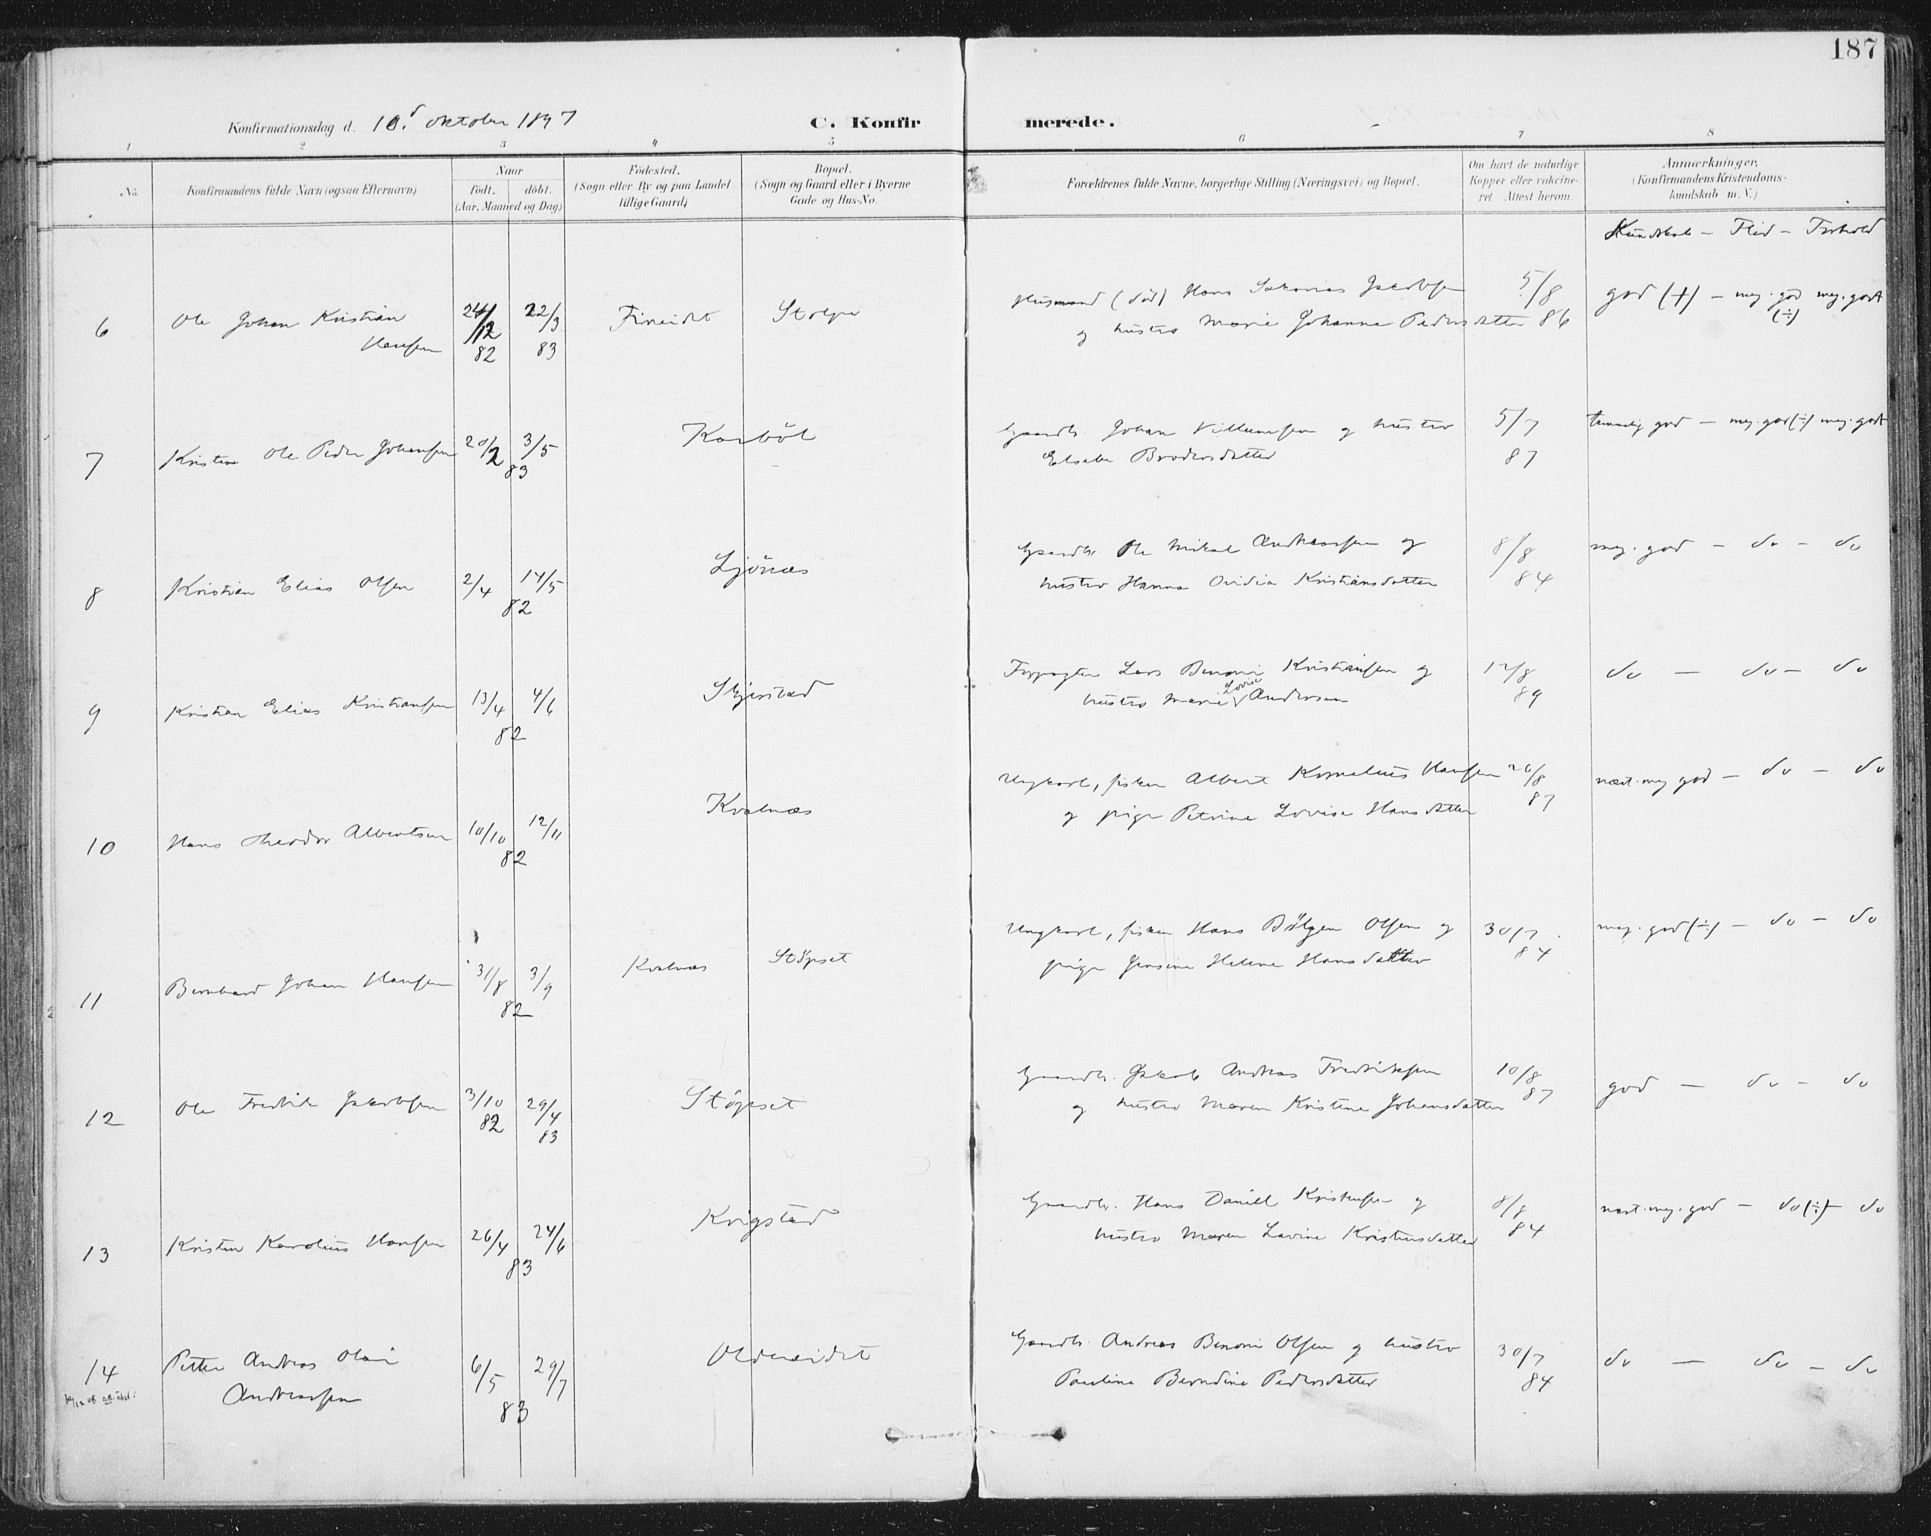 187
Konfirmationsdag d. 10. oktober 1897
C. Konfirmerede.
1 2 3 4 5 6 7 8
No.
Konfirmandens fulde Navn (ogsaa Efternavn)
Naar
födt. döbt.
(Aar, Maaned og Dag)
Födested.
(Sogn eller By og paa Landet
tillige Gaard)
Bopæl.
(Sogn og Gaard eller i Byerne
Gade og Hus-No.
Forældrenes fulde Navne, borgerlige Stilling (Næringsvei) og Bopæl.
Om havt de naturlige
Kopper eller vakcine-
ret Attest herom.
Anmærkninger.
(Konfirmandens Kristendoms-
kundskab m. V.)
Kundskab – Flid – Forhold
6 Ole Johan Kristian Hansen 24/12 82 22/3 83 Fineidet
Husmand (död) Hans Jakobsen 5/8 86 god (+) – meg. god (÷) meg. godt
og hustru Marie Johanne Pedersdatter
7 Ole Peder Johansen 20/2 3/5 83
Gaardb. Johan Villumsen og hustru 5/7 87 temmelig god – meg. god (÷) meg. godt
Brodersdatter
8 Kristian Elias Olsen 2/4 14/5 82 Ljönæs
Gaardb. Ole Mikal Andreassen og 8/8 84 meg. god – do – do
hustru Hanna Ovidia Kristiansdatter
9 Kristian Elias Kristiansen 13/4 4/6 82 Skjerstad
Forpagter Lars Benoni Kristiansen og 12/8 89 do – do – do
hustru Marie Lovise Andersen
10 Hans Theodor Albertsen 10/10 12/11 82 Kvalnæs
Ungkarl, fisker Albert Kornelius Hansen 26/8 87 næst. meg god – do – do
og pige Petrine Lovise Hansdatter
11 Bernhard Johan Hansen 31/8 3/9 82 Kvalnæs Stöpset
Ungkarl, fisker Hans Olsen og 30/7 84 meg. god (÷) – do – do
pige Jensine Helene Hansdatter
12 Ole Fredrik Jakobsen 3/10 82 29/4 83 Stöpset
Gaardb. Jakob Andreas Fredriksen 10/8 87 god – do – do
og hustru Maren Kristine Johansdatter
13 Kristen Karolius Hansen 26/4 24/6 83 Kvigstad
Gaardb. Hans Daniel Kristensen og 8/8 84 næst. meg. god – do (÷) – do
hustru Maren Lavine Kristensdatter
14 Petter Andreas Olai Andreassen 6/5 29/7 83 Oldereidet
Gaardb. Andreas Benoni Olsen og hustru 30/7 84 do – do – do
Pauline Berndine Pedersdatter